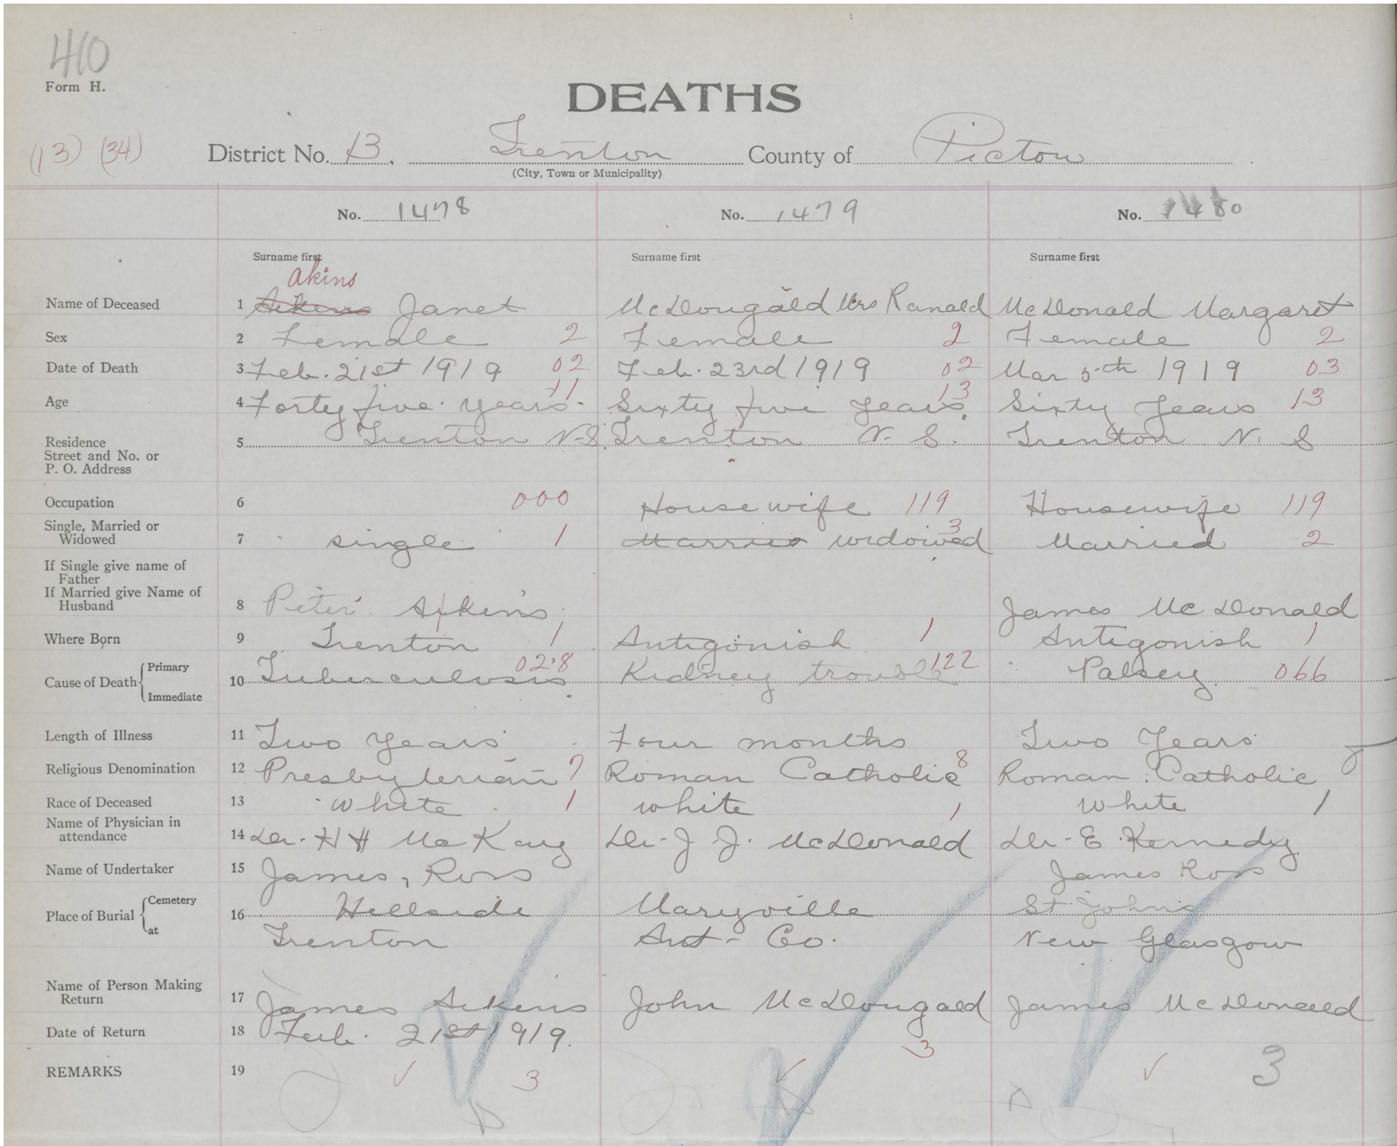 410
Form H.
DEATHS
(13) (34) District No. 13. Trenton County of Pictou
(City, Town or Municipality)
No. 1478 No. 1479 No. 1480
Surname first Surname first Surname first
Akins
Name of Deceased 1 Aikens Janet McDougald Mrs Ranald McDonald Margaret
Sex 2 Female 2 Female 2 Female 2
Date of Death 3 Feb. 21st 1919 02 Feb. 23rd 1919 02 Mar 5th 1919 03
Age 4 Forty five years. 11 Sixty five years. 13 Sixty years 13
Residence
Street and No. or
P. O. Address 5 Trenton N.S. Trenton N. S. Trenton N. S
Occupation 6 000 Housewife 119 Housewife 119
Single, Married or
Widowed 7 single 1 Married widowed 3 Married 2
If Single give name of
Father
If Married give Name of
Husband 8 Peter Aikens James McDonald
Where Born 9 Trenton 1 Antigonish 1 Antigonish 1
Cause of Death { Primary
Immediate 10 Tuberculosis 028 Kidney trouble 122 Palsey 066
Length of Illness 11 Two years Four months Two Years
Religious Denomination 12 Presbyterian 7 Roman Catholic 8 Roman Catholic 8
Race of Deceased 13 white 1 white 1 white 1
Name of Physician in
attendance 14 Dr. H H McKay Dr. J J. McDonald Dr. E. Kennedy
Name of Undertaker 15 James, Ross James Ross
Place of Burial { Cemetery
at 16 Hillside Maryville St Johns
Trenton Ant- Co. New Glasgow
Name of Person Making
Return 17 James Aikens John McDougald James McDonald
Date of Return 18 Feb. 21st 1919.
REMARKS 19 3 3 3